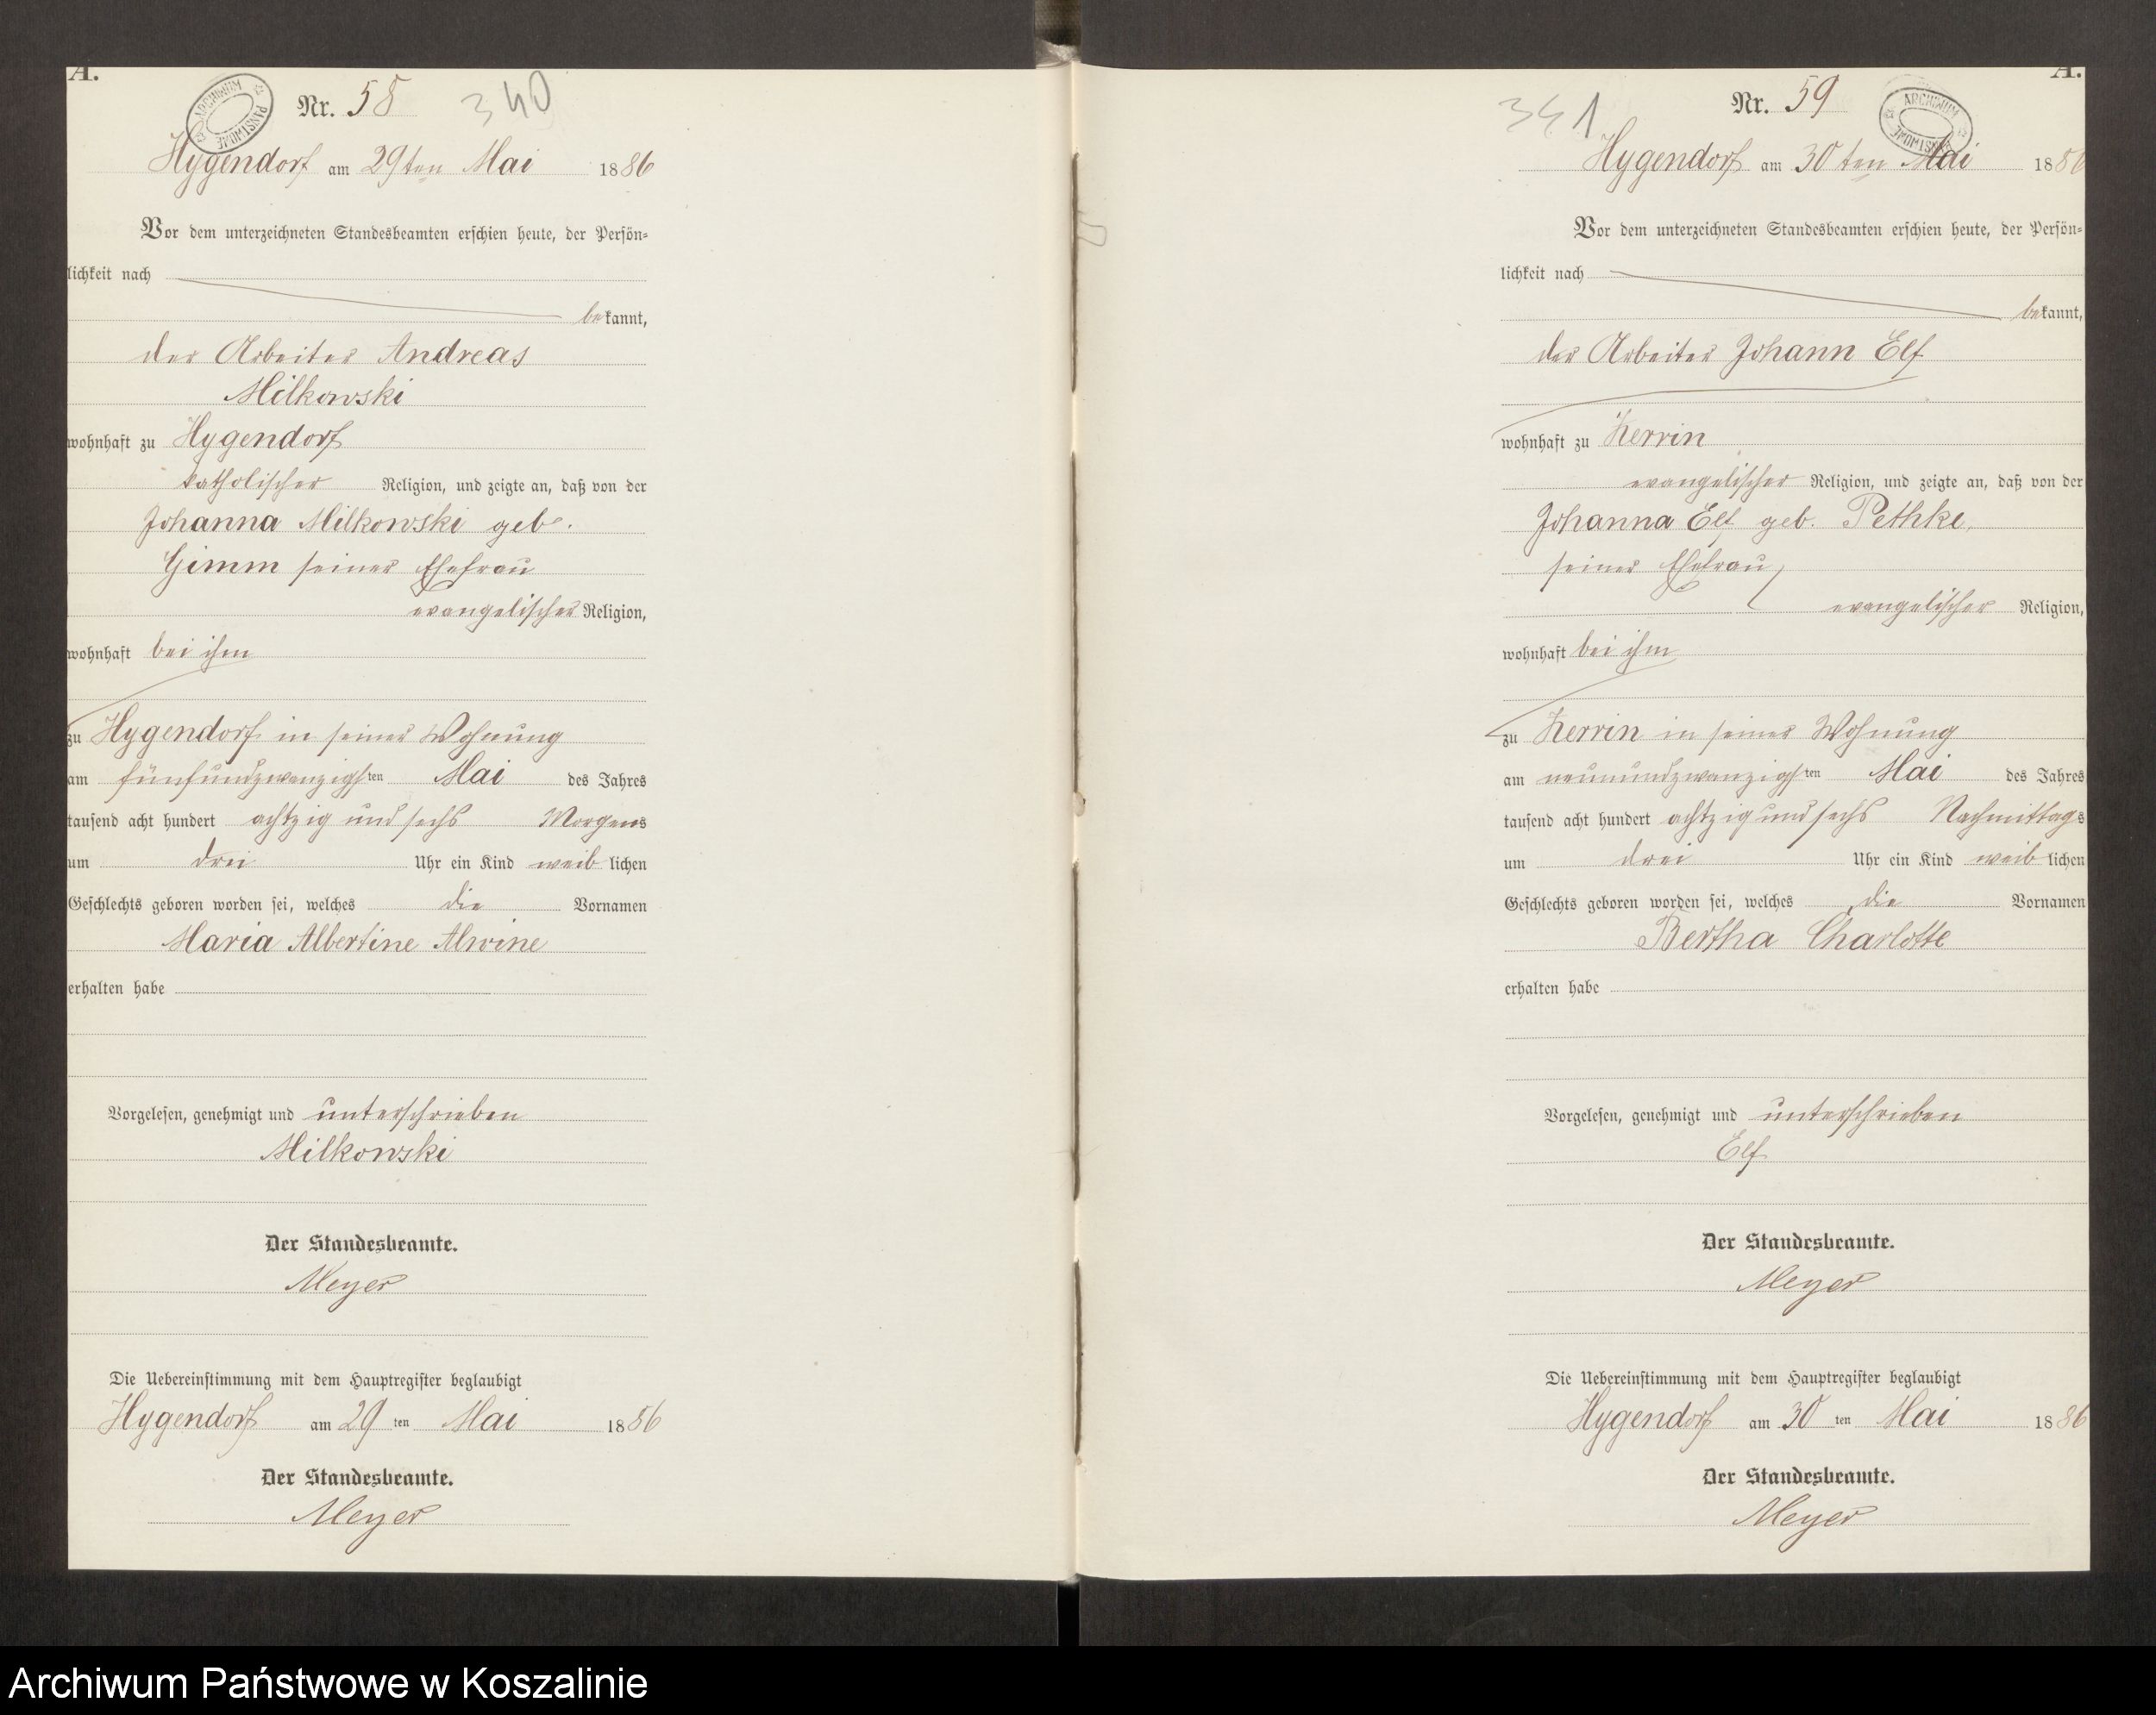 A.
Nr. 58 340
ARCHIWUM PAŃSTWOWE
Hygendorf am 29ten Mai 1886
Vor dem unterzeichneten Standesbeamten erschien heute, der Persön-
lichkeit nach
bekannt,
der Arbeiter Andreas
Milkowski
wohnhaft zu Hygendorf
katholischer Religion, und zeigte an, daß von der
Johanna Milkowski geb.
Gimm seiner Ehefrau
evangelischer Religion,
wohnhaft bei ihm
zu Hygendorf in seiner Wohnung
am fünfundzwanzigsten Mai des Jahres
tausend acht hundert achtzig und sechs Morgens
um drei Uhr ein Kind weiblichen
Geschlechts geboren worden sei, welches die Vornamen
Maria Albertine Alwine
erhalten habe
Vorgelesen, genehmigt und unterschrieben
Milkowski
Der Standesbeamte.
Meyer
Die Uebereinstimmung mit dem Hauptregister beglaubigt
Hygendorf am 29 ten Mai 1886
Der Standesbeamte.
Meyer
A.
341 Nr. 59
ARCHIWUM PAŃSTWOWE
Hygendorf am 30ten Mai 1886
Vor dem unterzeichneten Standesbeamten erschien heute, der Persön-
lichkeit nach
bekannt,
der Arbeiter Johann Elf
wohnhaft zu Zerrin
evangelischer Religion, und zeigte an, daß von der
Johanna Elf geb. Pethke,
seiner Ehefrau,
evangelischer Religion,
wohnhaft bei ihm
zu Zerrin in seiner Wohnung
am neunundzwanzigsten Mai des Jahres
tausend acht hundert achtzig und sechs Nachmittags
um drei Uhr ein Kind weiblichen
Geschlechts geboren worden sei, welches die Vornamen
Bertha Charlotte
erhalten habe
Vorgelesen, genehmigt und unterschrieben
Elf
Der Standesbeamte.
Meyer
Die Uebereinstimmung mit dem Hauptregister beglaubigt
Hygendorf am 30 ten Mai 1886
Der Standesbeamte.
Meyer
Archiwum Państwowe w Koszalinie